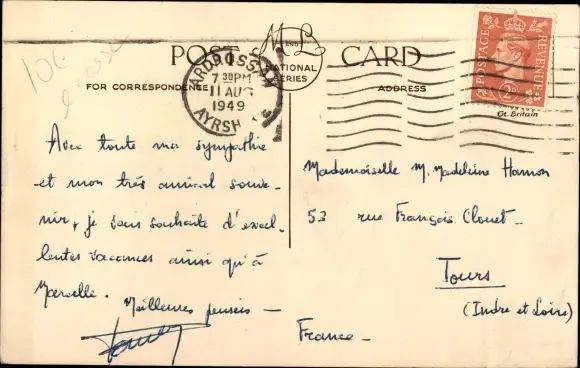 POST CARD
M AND L
NATIONAL
SERIES
FOR CORRESPONDENCE
ADDRESS
ARDROSSAN
7 30PM
11 AUG
1949
AYRSH
POSTAGE
REVENUE
2D
Gt. Britain
106
Avec toute ma sympathie
et mon très amical souve-
nir, je vous souhaite d'excel-
lentes vacances ainsi qu'à
Marcelle. Meilleures pensées —
Mademoiselle M. Madeleine Hamon
53 rue François Clouet -
Tours
(Indre et Loire)
France -